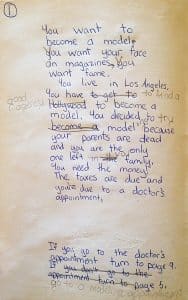 1
You want to
become a model,
you want your face
on magazines, you
want fame.
You live in Los Angeles.
You have to get to to find a
good
(agency)
Hollywood to become a
model. You decided to try
become a model because
your parents are dead
and you are the only
one left in family.
You need the money!
The taxes are due and
you're due to a doctor's
appointment.
If you go to the doctor's
appointment turn to page 9.
If you don't go to the
appointment turn to page 5.
go to a